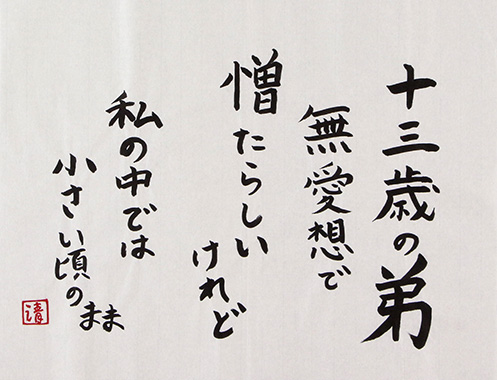 十三歳の弟
無愛想で
憎たらしい
けれど
私の中では
小さい頃の
まま
清